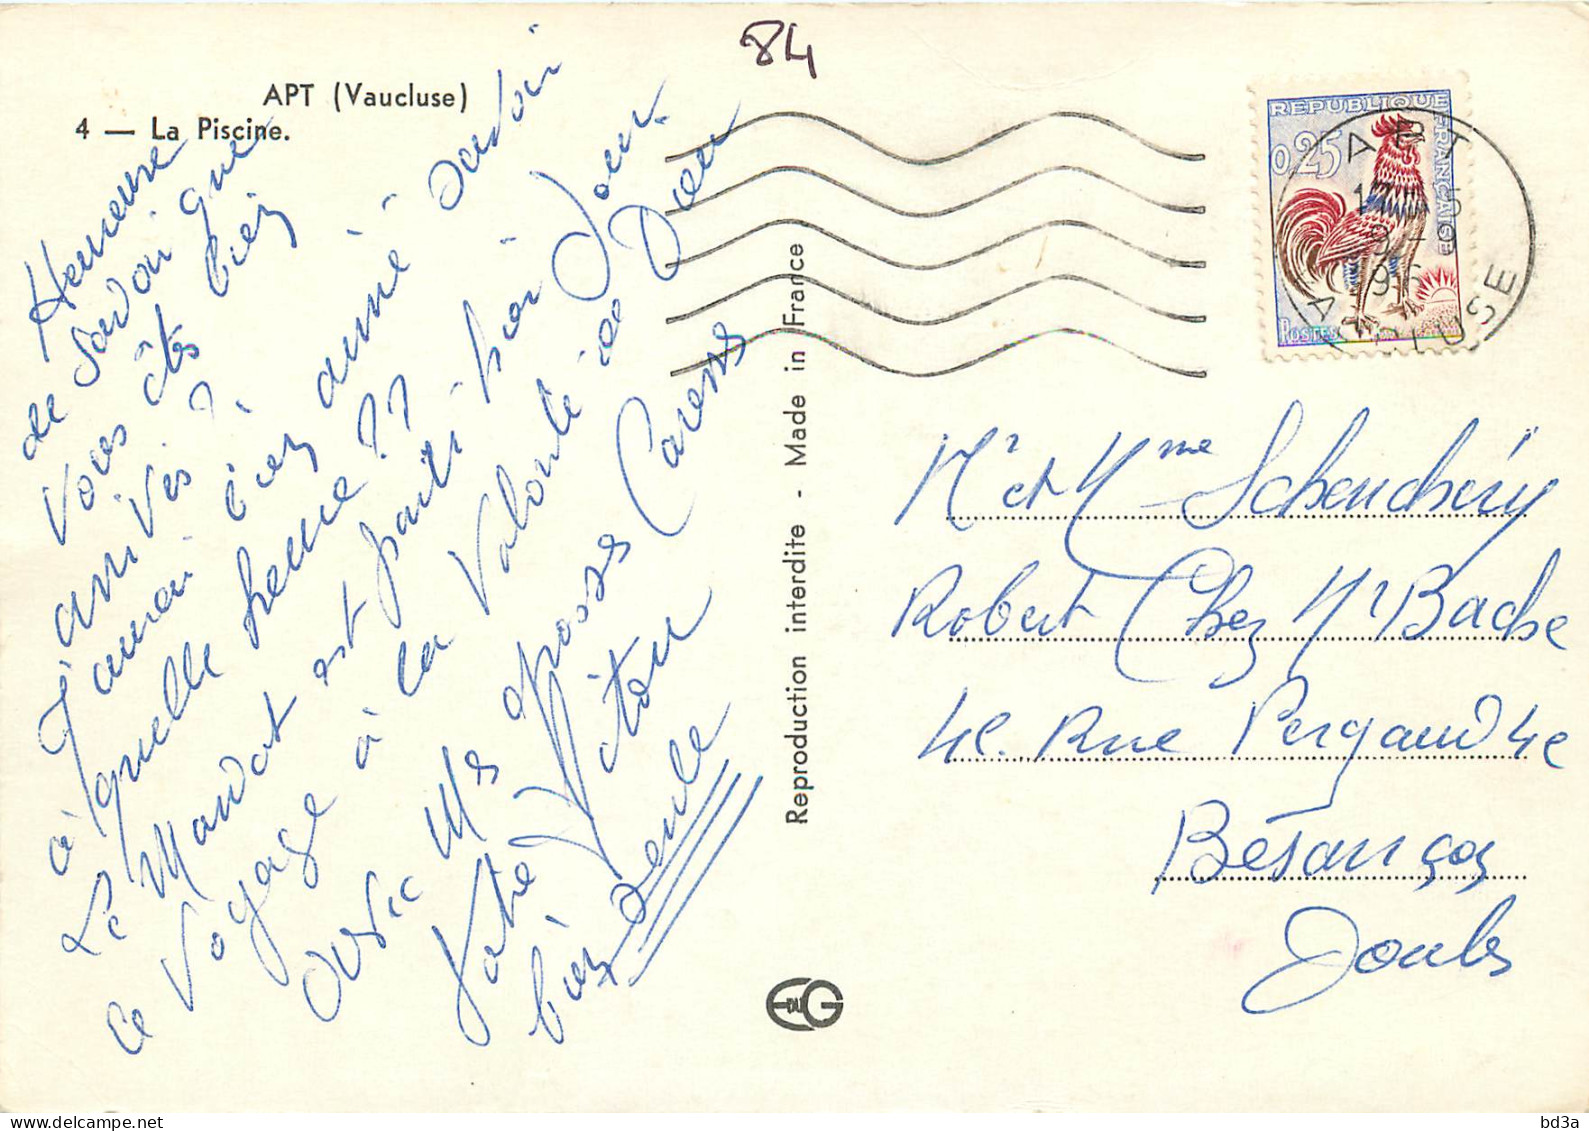 84
APT (Vaucluse)
4 — La Piscine.
Heureuse
de savoir que
vous êtes bien
arrivés ?
J'aurai bien aimé savoir
à quelle heure ??
Le Mandat est parti hier Jour
ce voyage à la Volonté de Dieu
avec Ms grosses Caresses
Votre
bien seule
Reproduction interdite - Made in France
REPUBLIQUE FRANÇAISE
0,25
POSTES
APT
VAUCLUSE
Mr et Mme
Robert Chez Mr Bache
4c. Rue Pergaud 4c
Bésançon
Doubs
E DU G
bd3a